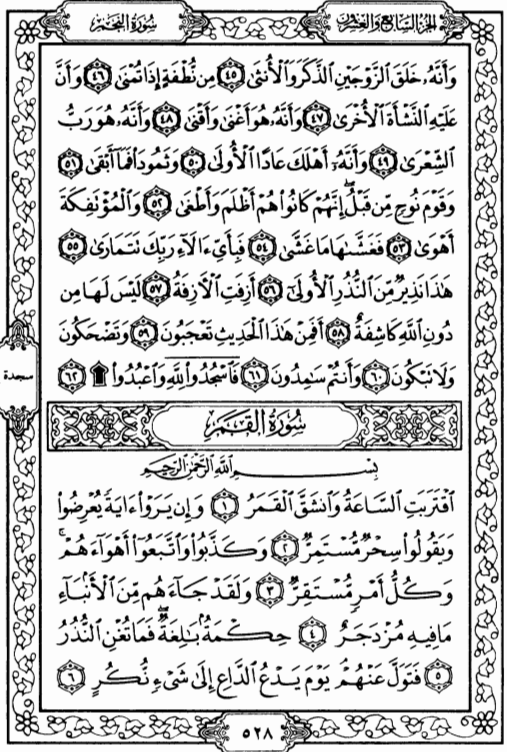 الجزء السابع والعشرون
سورة النجم
وَأَنَّهُۥ خَلَقَ ٱلزَّوْجَيْنِ ٱلذَّكَرَ وَٱلْأُنثَىٰ ٤٥ مِن نُّطْفَةٍ إِذَا تُمْنَىٰ ٤٦ وَأَنَّ
عَلَيْهِ ٱلنَّشْأَةَ ٱلْأُخْرَىٰ ٤٧ وَأَنَّهُۥ هُوَ أَغْنَىٰ وَأَقْنَىٰ ٤٨ وَأَنَّهُۥ هُوَ رَبُّ
ٱلشِّعْرَىٰ ٤٩ وَأَنَّهُۥٓ أَهْلَكَ عَادًا ٱلْأُولَىٰ ٥٠ وَثَمُودَا۟ فَمَآ أَبْقَىٰ ٥١
وَقَوْمَ نُوحٍ مِّن قَبْلُ ۖ إِنَّهُمْ كَانُوا۟ هُمْ أَظْلَمَ وَأَطْغَىٰ ٥٢ وَٱلْمُؤْتَفِكَةَ
أَهْوَىٰ ٥٣ فَغَشَّىٰهَا مَا غَشَّىٰ ٥٤ فَبِأَىِّ ءَالَآءِ رَبِّكَ تَتَمَارَىٰ ٥٥
هَٰذَا نَذِيرٌ مِّنَ ٱلنُّذُرِ ٱلْأُولَىٰٓ ٥٦ أَزِفَتِ ٱلْءَازِفَةُ ٥٧ لَيْسَ لَهَا مِن
دُونِ ٱللَّهِ كَاشِفَةٌ ٥٨ أَفَمِنْ هَٰذَا ٱلْحَدِيثِ تَعْجَبُونَ ٥٩ وَتَضْحَكُونَ
وَلَا تَبْكُونَ ٦٠ وَأَنتُمْ سَٰمِدُونَ ٦١ فَٱسْجُدُوا۟ لِلَّهِ وَٱعْبُدُوا۟ ۩ ٦٢
سجدة
سُورَةُ القَمَر
بِسْمِ ٱللَّهِ ٱلرَّحْمَٰنِ ٱلرَّحِيمِ
ٱقْتَرَبَتِ ٱلسَّاعَةُ وَٱنشَقَّ ٱلْقَمَرُ ١ وَإِن يَرَوْا۟ ءَايَةً يُعْرِضُوا۟
وَيَقُولُوا۟ سِحْرٌ مُّسْتَمِرٌّ ٢ وَكَذَّبُوا۟ وَٱتَّبَعُوٓا۟ أَهْوَآءَهُمْ ۚ
وَكُلُّ أَمْرٍ مُّسْتَقِرٌّ ٣ وَلَقَدْ جَآءَهُم مِّنَ ٱلْأَنۢبَآءِ
مَا فِيهِ مُزْدَجَرٌ ٤ حِكْمَةٌۢ بَٰلِغَةٌ ۖ فَمَا تُغْنِ ٱلنُّذُرُ
٥ فَتَوَلَّ عَنْهُمْ ۘ يَوْمَ يَدْعُ ٱلدَّاعِ إِلَىٰ شَىْءٍ نُّكُرٍ ٦
٥٢٨